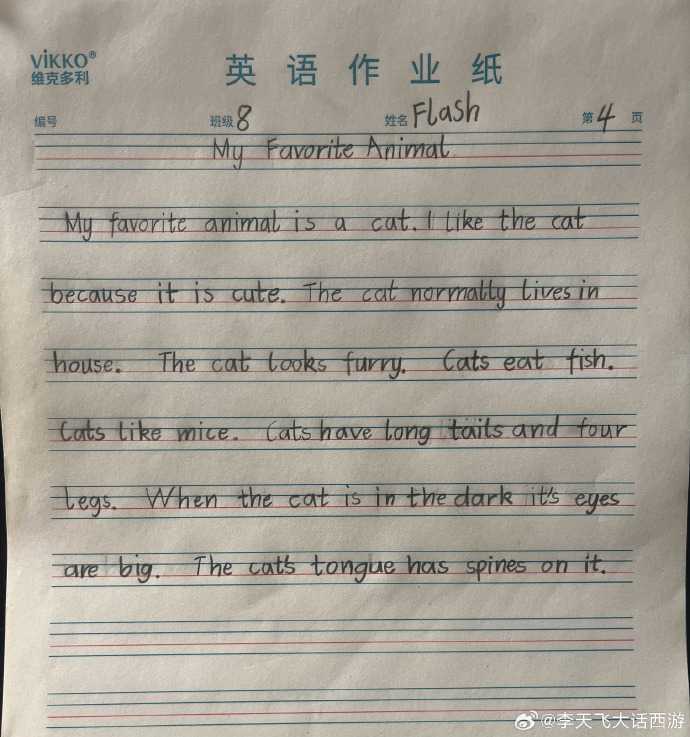 VIKKO®
维克多利
英语作业纸
编号 班级 8 姓名 Flash 第 4 页
My Favorite Animal
My favorite animal is a cat. I like the cat
because it is cute. The cat normally lives in
house. The cat looks furry. Cats eat fish.
Cats like mice. Cats have long tails and four
legs. When the cat is in the dark it's eyes
are big. The cat's tongue has spines on it.
@李天飞大话西游